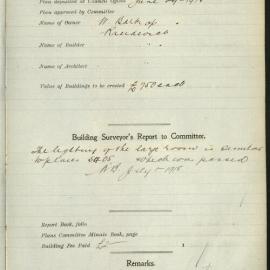 Plan deposited at Council Office June
Plan approved by Committee
Name of Owner W.
Randwick
Name of Builder "
Name of Architect "
Value of Buildings to be erected £750 each
Building Surveyor's Report to Committee.
The lighting of the large room is similar
to plans which was passed
July
Report Book, folio
Plans Committee Minute Book, page
Building Fee Paid £
Remarks.